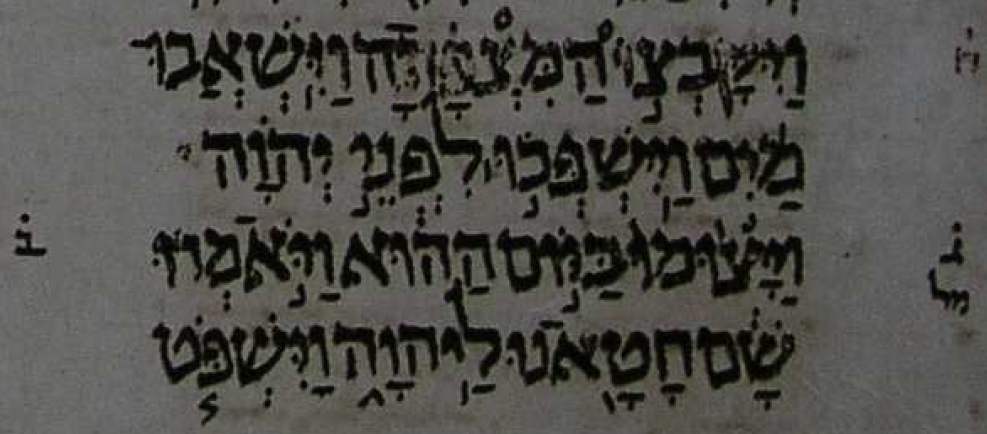 וַיִּקָּבְצ֣וּ הַ֠מִּצְפָּתָה וַיִּֽשְׁאֲבוּ־
מַ֜יִם וַֽיִּשְׁפְּכ֣וּ ׀ לִפְנֵ֣י יְהוָ֗ה
וַיָּצ֙וּמוּ֙ בַּיּ֣וֹם הַה֔וּא וַיֹּ֣אמְרוּ
שָׁ֔ם חָטָ֖אנוּ לַֽיהוָ֑ה וַיִּשְׁפֹּ֧ט
ב̇